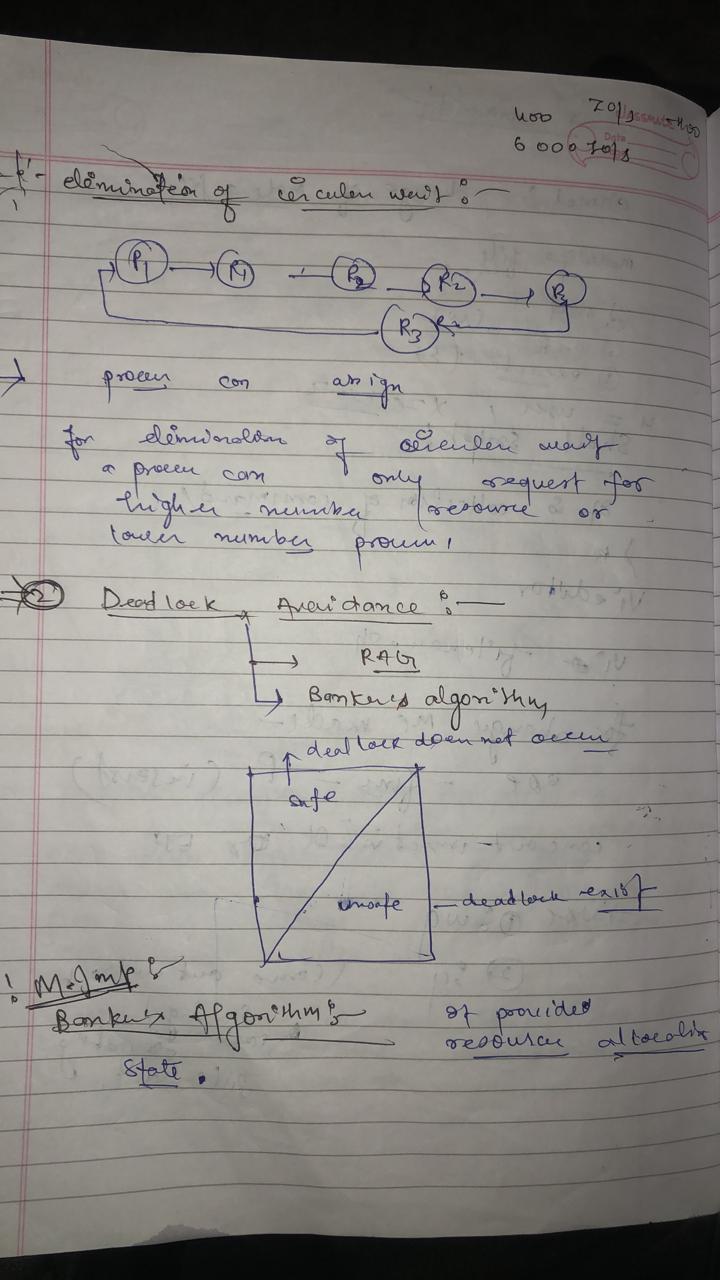 400 70/s 400
6 000 70/s
elimination of circuler wait :-
P1 R1 P2 R2 P3
R3
→ process can assign
for elimination of circuler wait
a process can only request for
higher number resource or
lower number process.
② Deadlock Avoidance :-
→ RAG
→ Banker's algorithm,
deallock does not occur
safe
unsafe deadlock exist
! M.Imp :-
Banker's Algorithm :- It provides
resources allocatix
state.